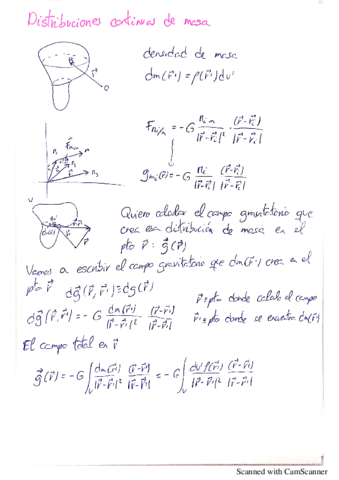 Distribuciones continuas de masa
densidad de masa
dm(r⃗') = ρ(r⃗')dv'
0
F⃗ₘᵢ/ₘ = -G mᵢ m / |r⃗-r⃗ᵢ|² · (r⃗-r⃗ᵢ) / |r⃗-r⃗ᵢ|
g⃗ₘᵢ(r⃗) = -G mᵢ / |r⃗-r⃗ᵢ|² (r⃗-r⃗ᵢ) / |r⃗-r⃗ᵢ|
Quiero calcular el campo gravitatorio que
crea esa distribución de masa en el
pto r⃗ : g⃗(r⃗)
Vamos a escribir el campo gravitatorio que dm(r⃗') crea en el
pto r⃗ dg⃗(r⃗, r⃗') ≡ dg⃗(r⃗)
dg⃗(r⃗, r⃗') = -G dm(r⃗') / |r⃗-r⃗'|² · (r⃗-r⃗') / |r⃗-r⃗'|
r⃗ ≡ pto donde calculo el campo
r⃗' ≡ pto donde se encuentra dm(r⃗')
El campo total en r⃗
g⃗(r⃗) = -G ∫ dm(r⃗') / |r⃗-r⃗'|² (r⃗-r⃗') / |r⃗-r⃗'| = -G ∫ dv' ρ(r⃗') / |r⃗-r⃗'|² (r⃗-r⃗') / |r⃗-r⃗'|
Scanned with CamScanner